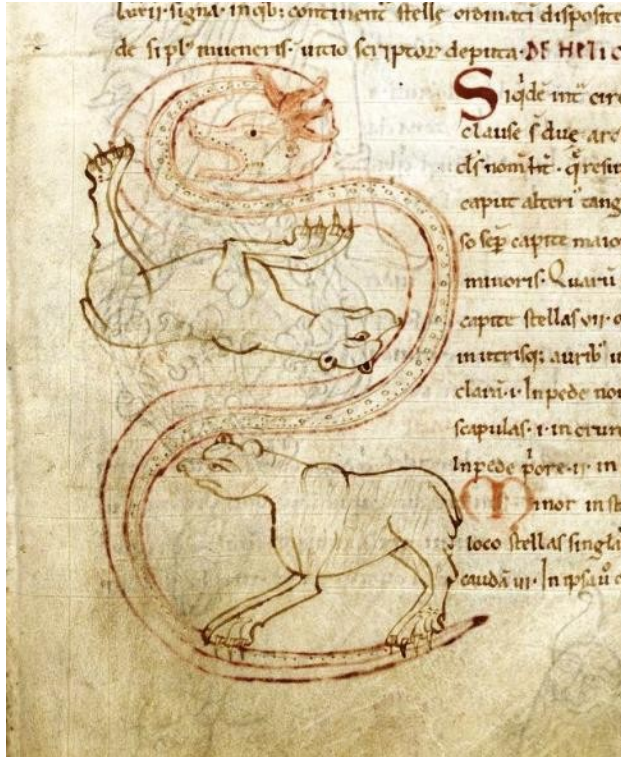 signa. in qib: continent stelle ordinati disposite
de si pl' muneris uitio scriptor deputa. DE HELIC
Siqde int circ
clause s due arc
caput alteri tang
so sep capite maior
minoris. Quaru
capite stellas vii. o
in utrisq; aurib' u
clara. i. In pede
scapulas. i. in crure
In pede pore. ii. in
Minor in st
loco stellas singla
cauda iii. In ipsa u